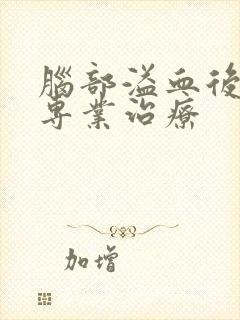 腦部溢血後
專業治療
加增